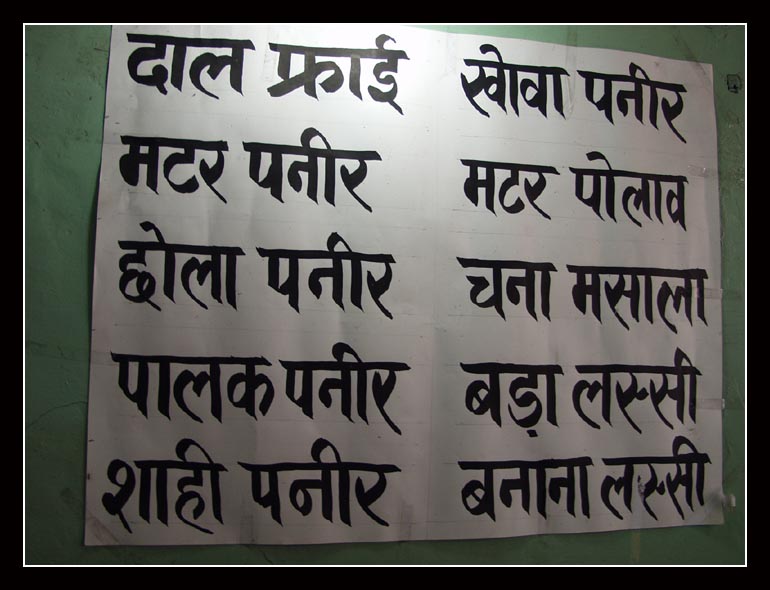 दाल फ्राई
मटर पनीर
छोला पनीर
पालक पनीर
शाही पनीर
खोवा पनीर
मटर पोलाव
चना मसाला
बड़ा लस्सी
बनाना लस्सी